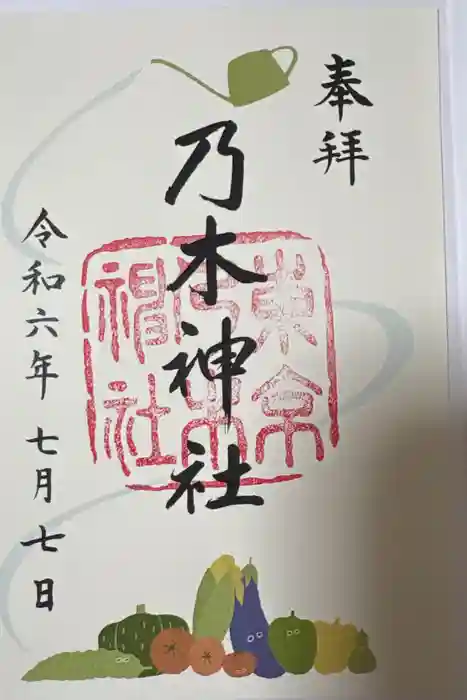 奉拝
乃木神社
令和六年七月七日
東京
乃木
神社